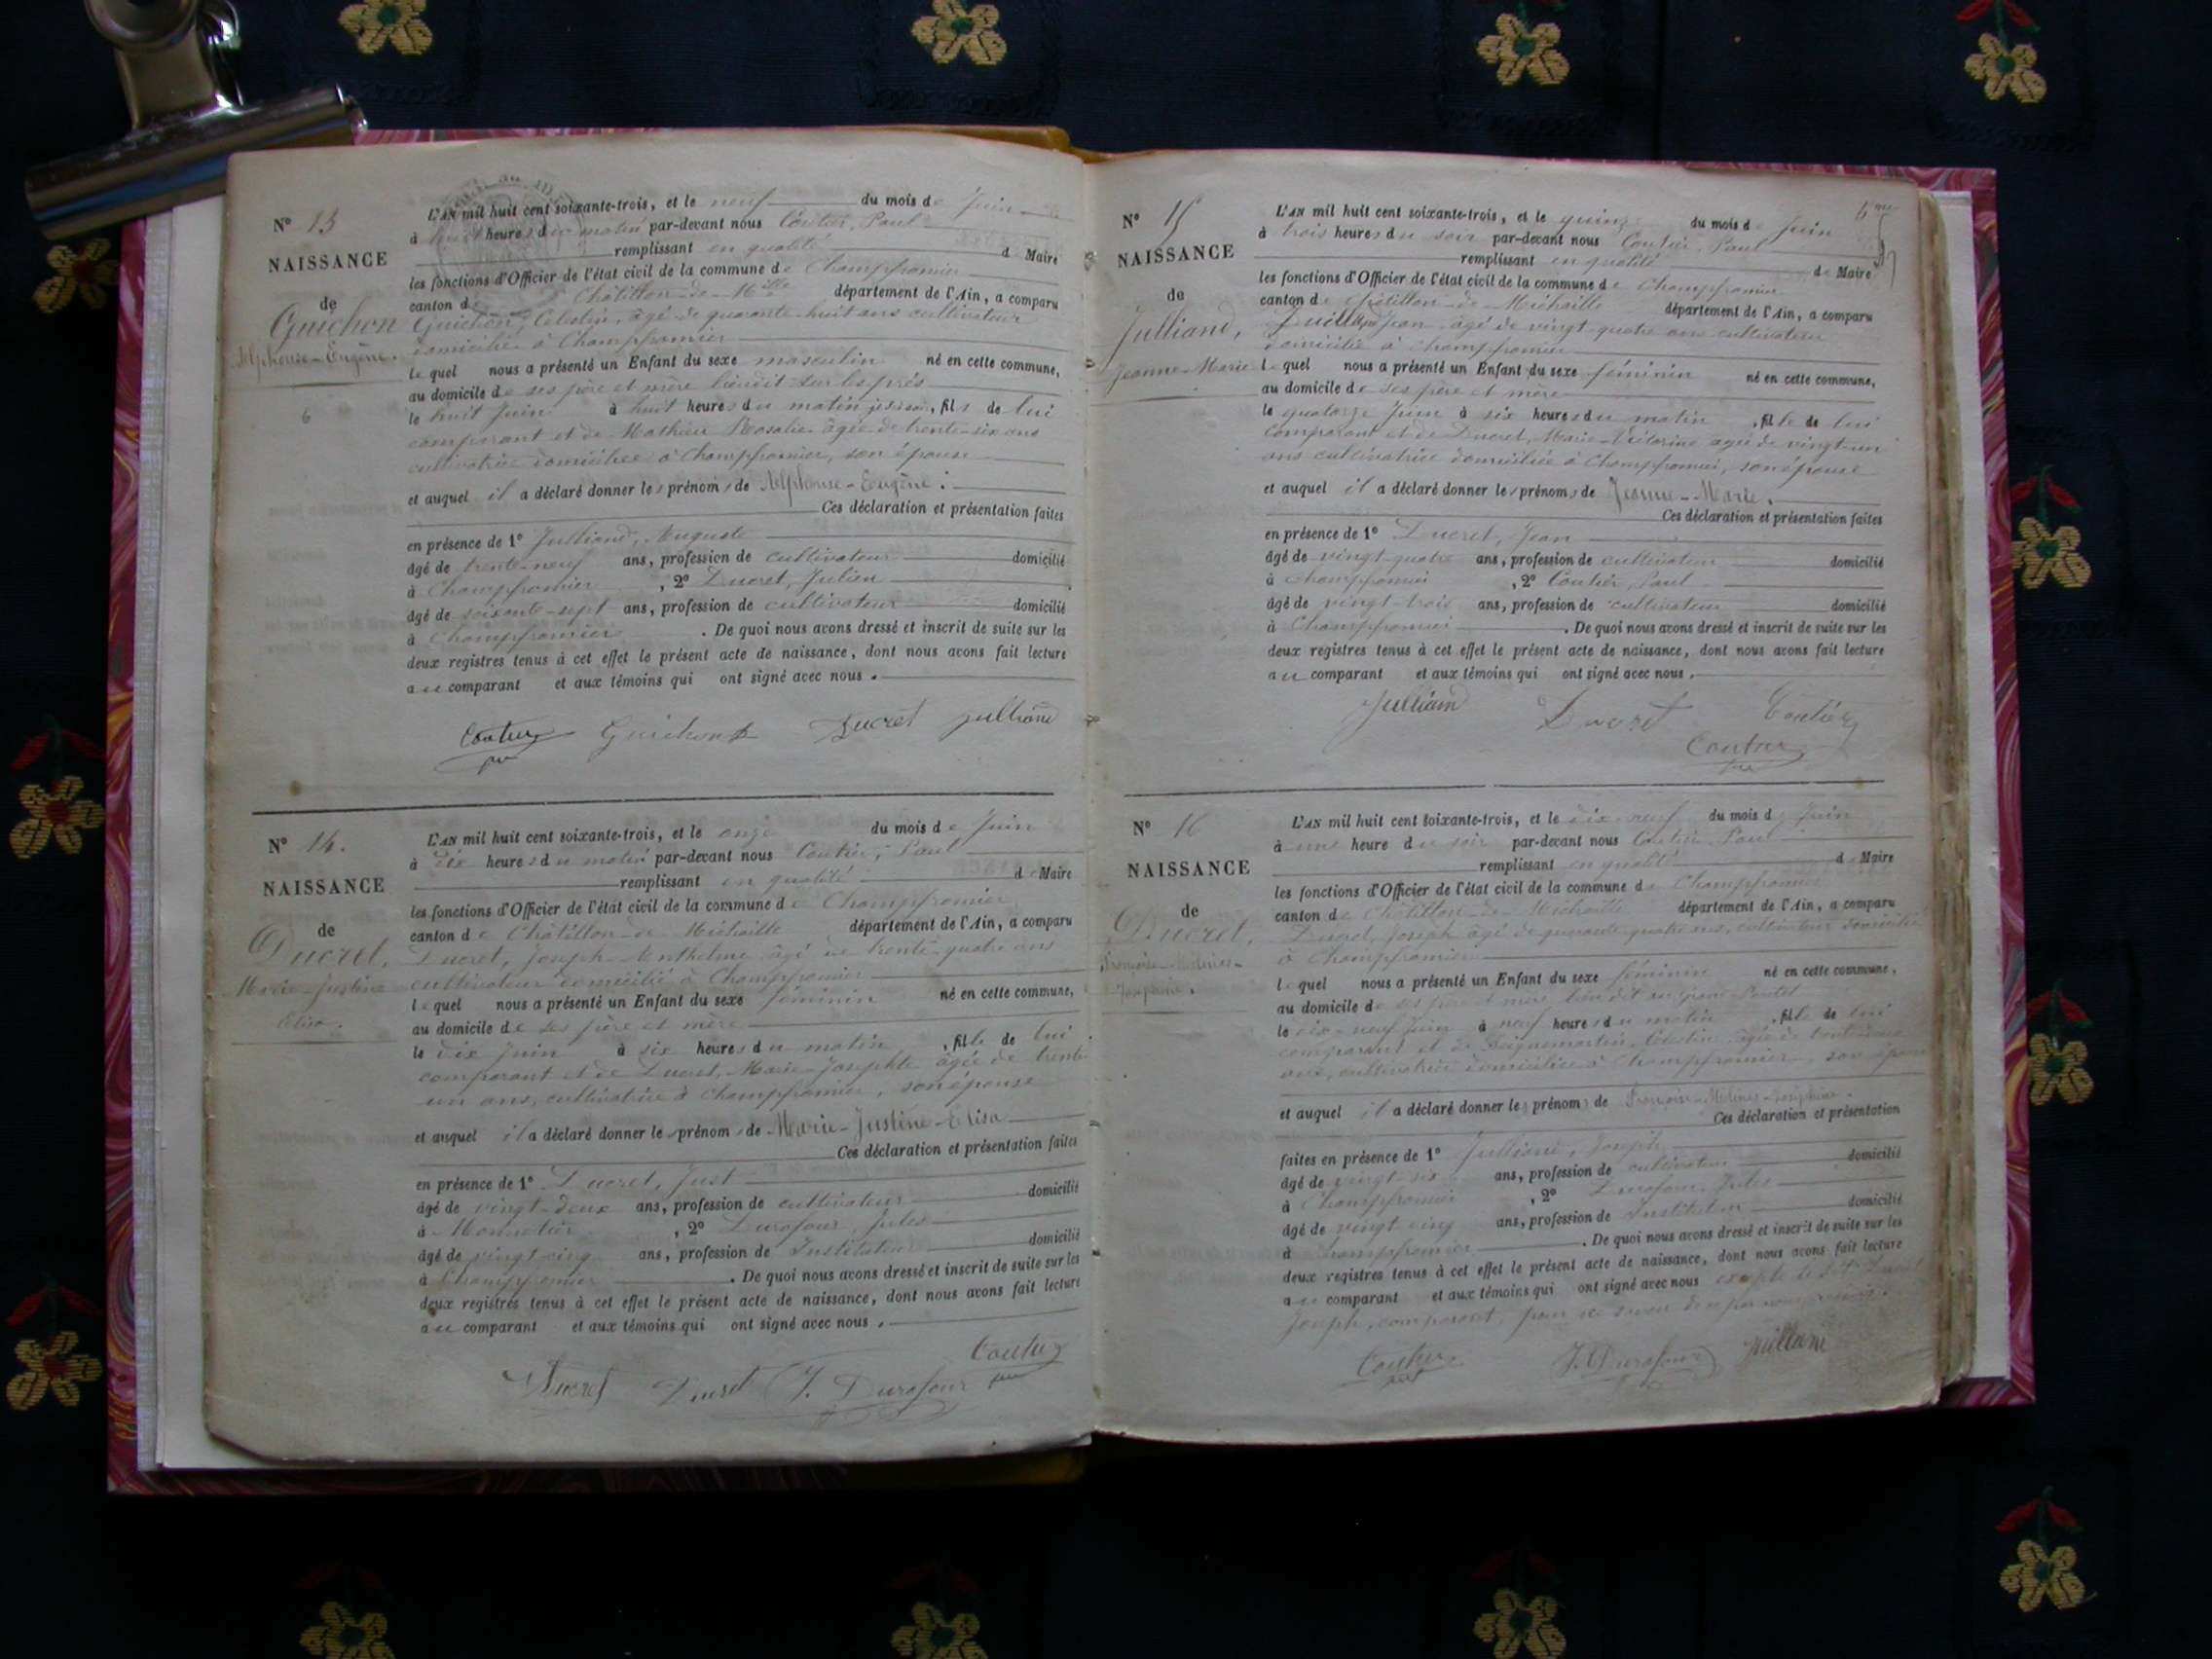 N° 13
NAISSANCE
de
Guichon
Alphonse-Eugène.
6
L'AN mil huit cent soixante-trois, et le neuf du mois de Juin
à huit heures du matin par-devant nous Coutier, Paul
remplissant en qualité de Maire
les fonctions d'Officier de l'état civil de la commune de Champfromier
canton de Châtillon-de-Mlle département de l'Ain, a comparu
Guichon, Celestin, âgé de quarante-huit ans cultivateur
domicilié à Champfromier
lequel nous a présenté un Enfant du sexe masculin né en cette commune,
au domicile de ses père et mère lieudit sur les prés
le huit Juin à huit heures du matin, fils de lui
comparant et de Mathieu Rosalie âgée de trente-six ans
cultivatrice domiciliée à Champfromier, son épouse
et auquel il a déclaré donner les prénoms de Alphonse-Eugène.
Ces déclaration et présentation faites
en présence de 1° Julliand, Auguste
âgé de trente-neuf ans, profession de cultivateur domicilié
à Champfromier, 2° Ducret, Julien
âgé de soixante-sept ans, profession de cultivateur domicilié
à Champfromier. De quoi nous avons dressé et inscrit de suite sur les
deux registres tenus à cet effet le présent acte de naissance, dont nous avons fait lecture
au comparant et aux témoins qui ont signé avec nous.
Coutier Guichon Ducret Julliand
N° 14.
NAISSANCE
de
Ducret,
Marie-Justine
Elisa.
L'AN mil huit cent soixante-trois, et le onze du mois de Juin
à dix heures du matin par-devant nous Coutier, Paul
remplissant en qualité de Maire
les fonctions d'Officier de l'état civil de la commune de Champfromier
canton de Châtillon-de-Michaille département de l'Ain, a comparu
Ducret, Joseph-Anthelme âgé de trente-quatre ans
cultivateur domicilié à Champfromier
lequel nous a présenté un Enfant du sexe féminin né en cette commune,
au domicile de ses père et mère
le dix Juin à six heures du matin, fille de lui
comparant et de Ducret, Marie-Josephte âgée de trente
un ans, cultivatrice à Champfromier, son épouse
et auquel il a déclaré donner les prénoms de Marie-Justine-Elisa
Ces déclaration et présentation faites
en présence de 1° Ducret, Just
âgé de vingt-deux ans, profession de cultivateur domicilié
à Monnetier, 2° Durafour, Jules
âgé de vingt-cinq ans, profession de Instituteur domicilié
à Champfromier. De quoi nous avons dressé et inscrit de suite sur les
deux registres tenus à cet effet le présent acte de naissance, dont nous avons fait lecture
au comparant et aux témoins qui ont signé avec nous.
Coutier
Ducret Ducret J. Durafour
6me
N° 15
NAISSANCE
de
Julliand,
Jeanne-Marie
L'AN mil huit cent soixante-trois, et le quinze du mois de Juin
à trois heures du soir par-devant nous Coutier, Paul
remplissant en qualité de Maire
les fonctions d'Officier de l'état civil de la commune de Champfromier
canton de Châtillon-de-Michaille département de l'Ain, a comparu
Julliand Jean âgé de vingt-quatre ans cultivateur
domicilié à Champfromier
lequel nous a présenté un Enfant du sexe féminin né en cette commune,
au domicile de ses père et mère
le quatorze Juin à six heures du matin, fille de lui
comparant et de Ducret, Marie-Victorine âgée de vingt-un
ans cultivatrice domiciliée à Champfromier, son épouse
et auquel il a déclaré donner les prénoms de Jeanne-Marie.
Ces déclaration et présentation faites
en présence de 1° Ducret, Jean
âgé de vingt-quatre ans, profession de cultivateur domicilié
à Champfromier, 2° Coutier, Paul
âgé de vingt-trois ans, profession de cultivateur domicilié
à Champfromier. De quoi nous avons dressé et inscrit de suite sur les
deux registres tenus à cet effet le présent acte de naissance, dont nous avons fait lecture
au comparant et aux témoins qui ont signé avec nous.
Julliand Ducret Coutier
Coutier
N° 16
NAISSANCE
de
Ducret,
Josephine.
L'AN mil huit cent soixante-trois, et le dix-neuf du mois de Juin
à une heure du soir par-devant nous Coutier, Paul
remplissant en qualité de Maire
les fonctions d'Officier de l'état civil de la commune de Champfromier
canton de Châtillon-de-Michaille département de l'Ain, a comparu
Ducret, Joseph âgé de quarante-quatre ans, cultivateur domicilié
à Champfromier
lequel nous a présenté un Enfant du sexe féminin né en cette commune,
au domicile de ses père et mère lieu dit
le dix-neuf Juin à neuf heures du matin, fille de lui
comparant et de Seignemartin, âgée de
ans, cultivatrice domiciliée à Champfromier, son épouse
et auquel il a déclaré donner les prénoms de
Ces déclaration et présentation
faites en présence de 1° Julliand, Joseph
âgé de vingt-six ans, profession de cultivateur domicilié
à Champfromier, 2° Durafour, Jules
âgé de vingt-cinq ans, profession de Instituteur domicilié
à Champfromier. De quoi nous avons dressé et inscrit de suite sur les
deux registres tenus à cet effet le présent acte de naissance, dont nous avons fait lecture
au comparant et aux témoins qui ont signé avec nous excepté le dit Ducret
Joseph, comparant, pour ne savoir
Coutier J. Durafour Julliand